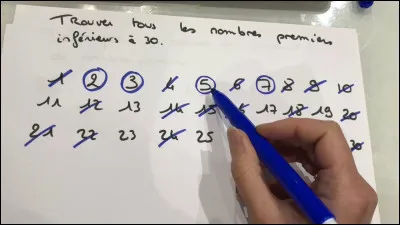 Trouver tous les nombres premiers
inférieurs à 30.
1 2 3 4 5 6 7 8 9 10
11 12 13 14 15 17 18 19 20
21 22 23 24 25 30